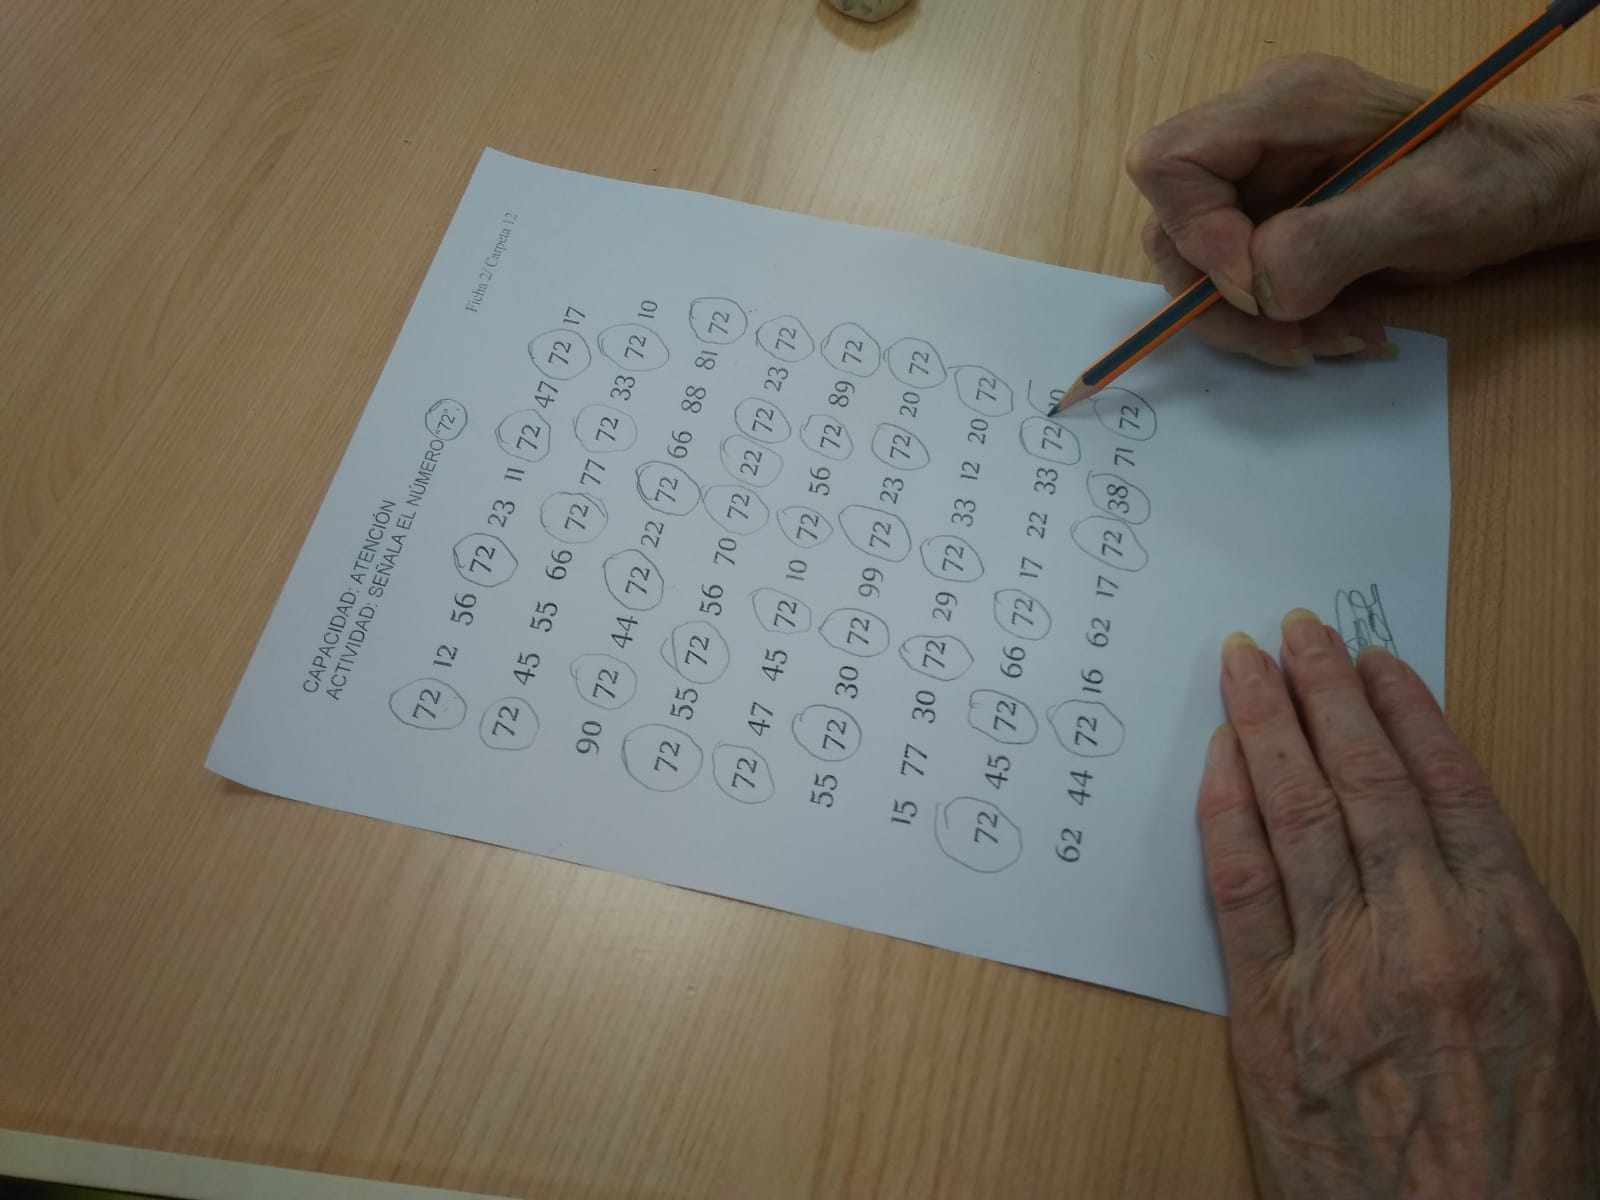 Ficha 2/ Carpeta 12
CAPACIDAD: ATENCIÓN
ACTIVIDAD: SEÑALA EL NÚMERO "72".
72 12 56 72 23 11 72 47 72 17
72 45 55 66 72 77 72 33 72 10
90 72 44 72 22 72 66 88 81 72
72 55 72 56 70 72 22 72 23 72
72 47 45 72 10 72 56 72 89 72
55 72 30 72 99 72 23 72 20 72
15 77 30 72 29 72 33 12 20 72
72 45 72 66 72 17 22 33 72
62 44 72 16 62 17 72 38 71 72